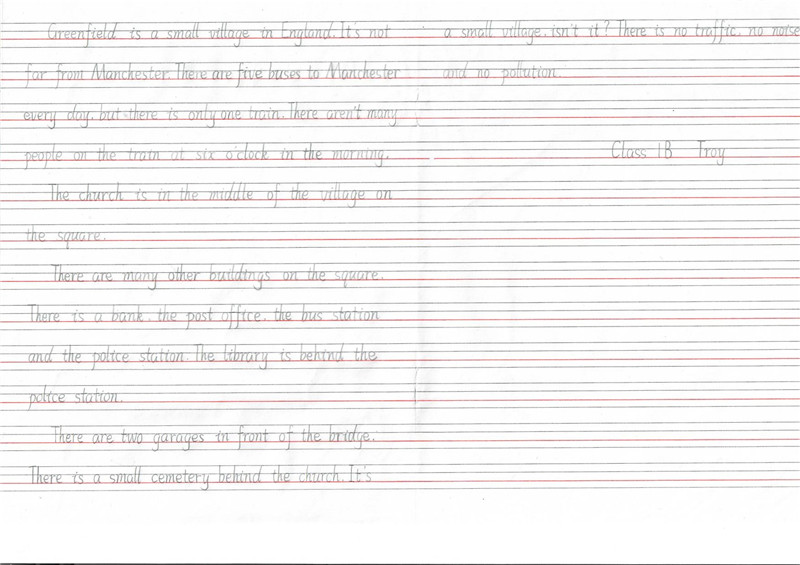 Greenfield is a small village in England. It's not
far from Manchester. There are five buses to Manchester
every day, but there is only one train. There aren't many
people on the train at six o'clock in the morning.
The church is in the middle of the village on
the square.
There are many other buildings on the square.
There is a bank, the post office, the bus station
and the police station. The library is behind the
police station.
There are two garages in front of the bridge.
There is a small cemetery behind the church. It's
a small village, isn't it? There is no traffic, no noise
and no pollution.
Class 1B Troy